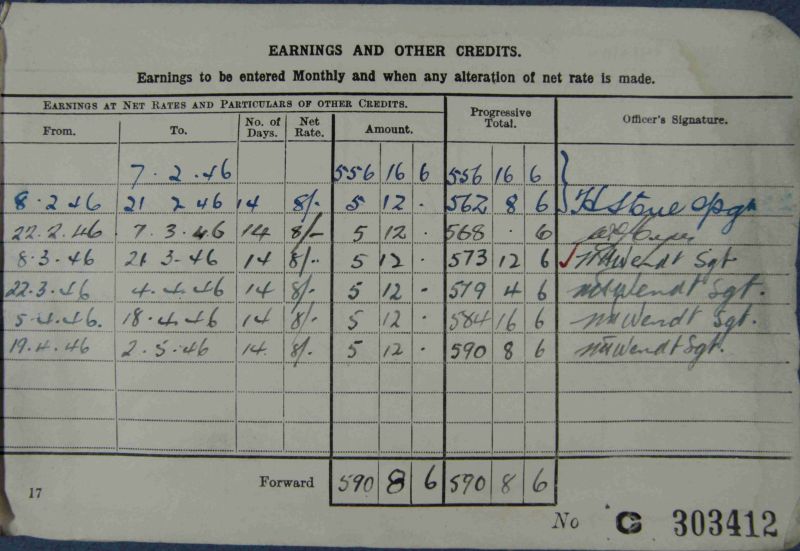 EARNINGS AND OTHER CREDITS.
Earnings to be entered Monthly and when any alteration of net rate is made.
EARNINGS AT NET RATES AND PARTICULARS OF OTHER CREDITS. Progressive Total. Officer's Signature.
From. To. No. of Days. Net Rate. Amount.
7.2.46 556 16 6 556 16 6
8.2.46 21 2 46 14 8/- 5 12 . 562 8 6 H Stone
22.2.46 7.3.46 14 8/- 5 12 . 568 . 6
8.3.46 21 3.46 14 8/- 5 12 . 573 12 6 Wendt Sgt
22.3.46 4.4.46 14 8/- 5 12 . 579 4 6 Wendt Sgt.
5.4.46. 18.4.46 14 8/- 5 12 . 584 16 6 Wendt Sgt.
19.4.46 2.5.46 14. 8/- 5 12 . 590 8 6 Wendt Sgt.
17 Forward 590 8 6 590 8 6
No G 303412